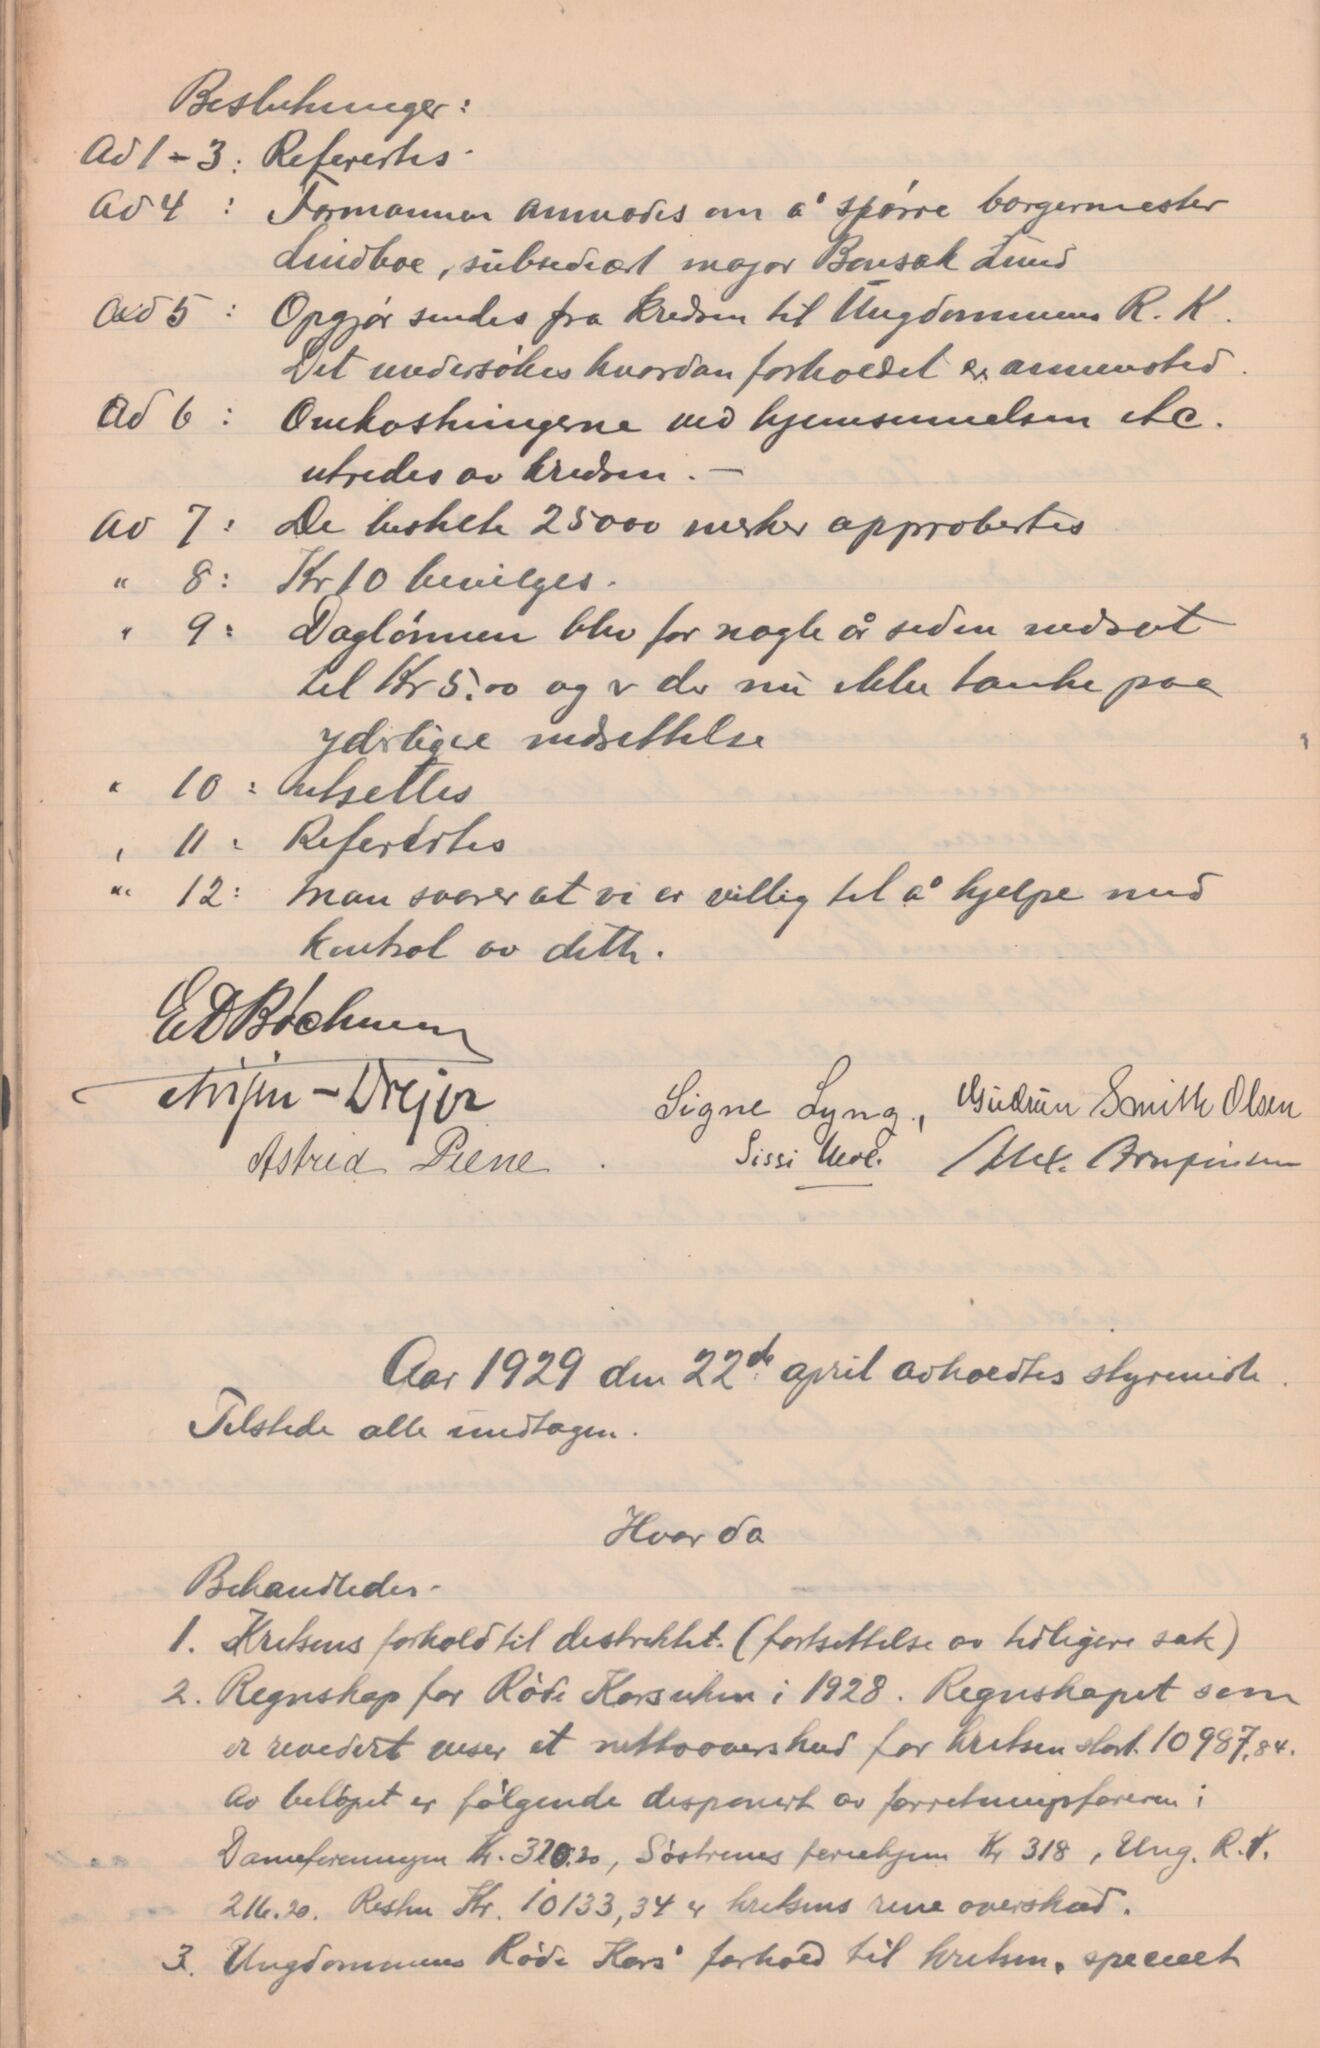 Beslutninger:
Ad 1-3: Referertes.
Ad 4 : Formannen anmodes om å spørre borgermester
Lindboe, subsediært major Bonsak Lund
Ad 5 : Opgjør sendes fra kredsen til Ungdommens R. K.
Det undersøkes hvordan forholdet er annensted.
Ad 6 : Omkostningerne ved hjemsendelsen etc.
utredes av kredsen. —
Ad 7 : De bestilte 25000 merker approbertes
" 8 : Kr 10 bevilges.
" 9 : Daglønnen blev for nogle år siden nedsat
til Kr 5.00 og er der nu ikke tanke paa
yderligere nedsettelse
" 10 : utsettes
" 11 : Referertes
" 12 : Man svarer at vi er villig til å hjelpe med
kontrol av dette.
E D Bachmann
- Dreyer
Signe Lyng, Gudrun Smith Olsen
Astrid Piene.
Sissi Alex.
Aar 1929 den 22de april avholdtes styremøte.
Tilstede alle undtagen.
Hvor da
Behandledes.
1. Kretsens forhold til distriktet. (fortsettelse av tidligere sak)
2. Regnskap for Røde Korsuken i 1928. Regnskapet som
er revidert viser et nettooverskud for kretsen stort 10987,84.
Av beløpet er følgende disponert av forretningsføreren i
Dameforeningen Kr. 320.20, Søstrenes feriehjem Kr 318, Ung. R.K.
216.20. Resten Kr. 10133,34 er kretsens rene overskud.
3. Ungdommens Røde Kors' forhold til kretsen, specielt